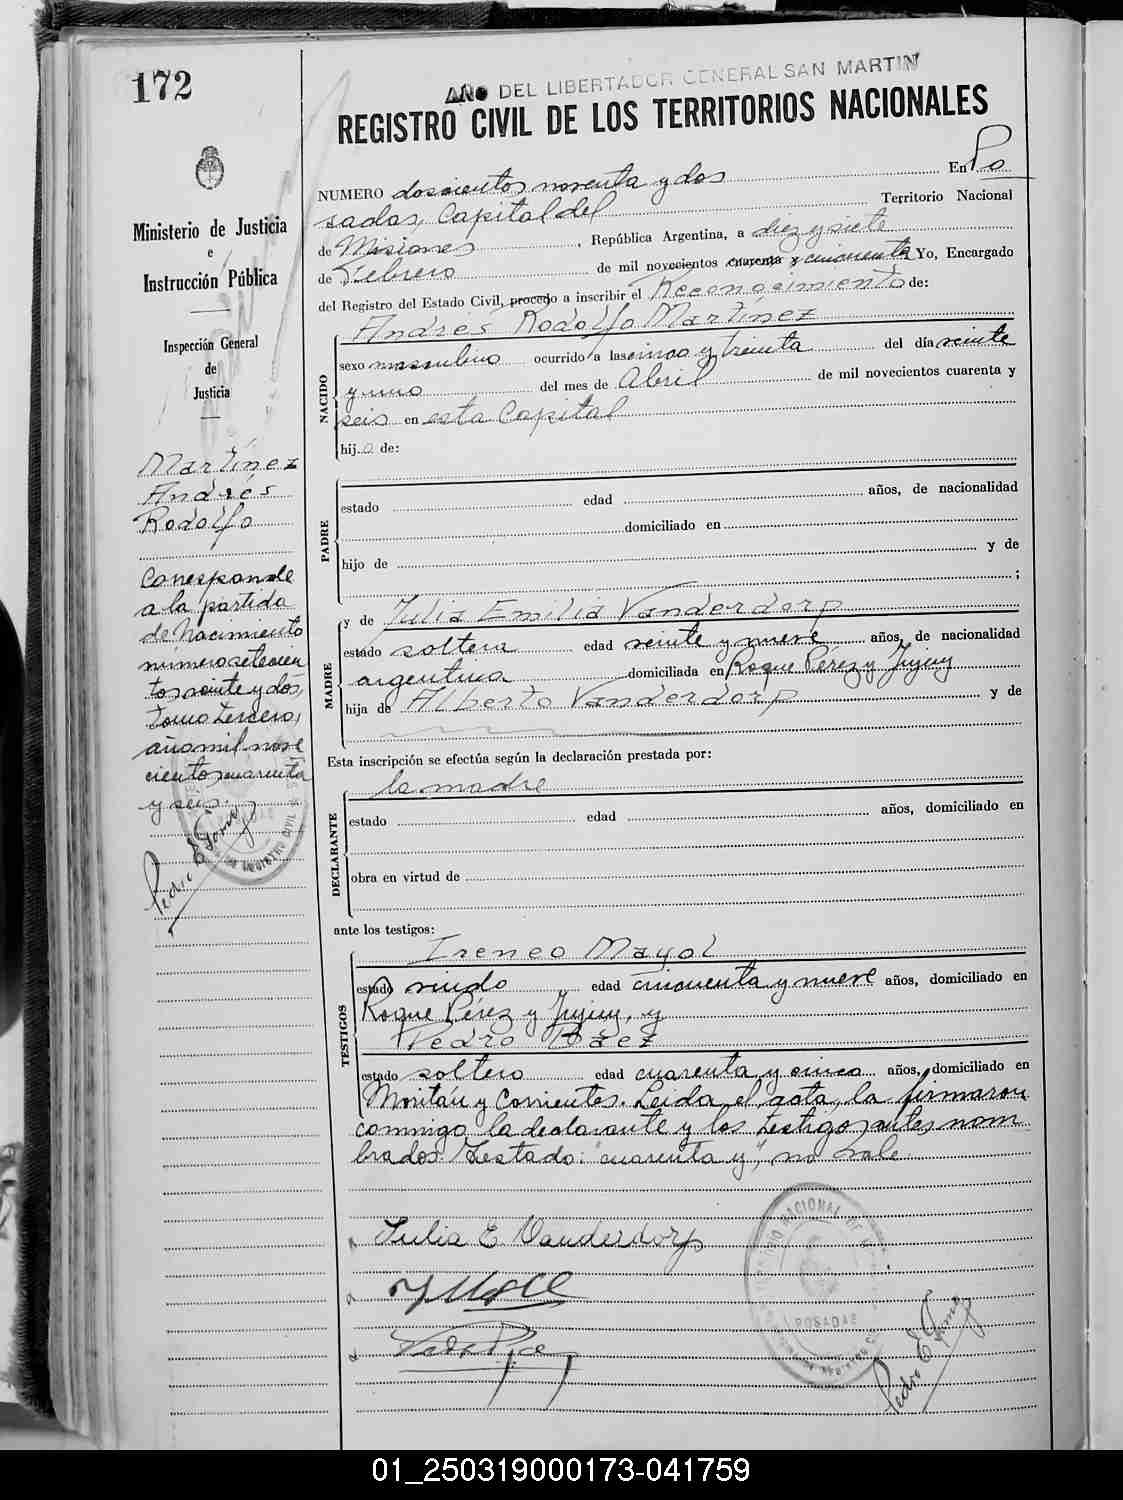 172
AÑO DEL LIBERTADOR GENERAL SAN MARTIN
REGISTRO CIVIL DE LOS TERRITORIOS NACIONALES
Ministerio de Justicia
e
Instrucción Pública
Inspección General
de
Justicia
Martínez
Andrés
Rodolfo
Corresponde
a la partida
de Nacimiento
número setecien
tos veinte y dos,
tomo tercero,
año mil nove
cientos cuarenta
y seis.
Pedro E Gomez
NUMERO doscientos noventa y dos En Po
sadas, Capital del Territorio Nacional
de Misiones, República Argentina, a diez y siete
de Febrero de mil novecientos cuarenta y cincuenta Yo, Encargado
del Registro del Estado Civil, procedo a inscribir el Reconocimiento de:
Andrés Rodolfo Martínez
NACIDO
sexo masculino ocurrido a las cinco y treinta del día veinte
y uno del mes de Abril de mil novecientos cuarenta y
seis en esta Capital
hijo de:
PADRE
estado edad años, de nacionalidad
domiciliado en
hijo de y de
;
y de Julia Emilia Vanderdorp
MADRE
estado soltera edad veinte y nueve años, de nacionalidad
argentina domiciliada en Roque Pérez y Jujuy
hija de Alberto Vanderdorp y de
Esta inscripción se efectúa según la declaración prestada por:
la madre
DECLARANTE
estado edad años, domiciliado en
obra en virtud de
ante los testigos:
Ireneo Mayol
TESTIGOS
estado viudo edad cincuenta y nueve años, domiciliado en
Roque Pérez y Jujuy, y
Pedro Báez
estado soltero edad cuarenta y cinco años, domiciliado en
Moritán y Corrientes. Leida el acta, la firmaron
conmigo la declarante y los testigos antes nom
brados. Testado: "cuarenta y", no vale
Julia E Vanderdorp
POSADAS
Pedro E Gomez
01_250319000173-041759